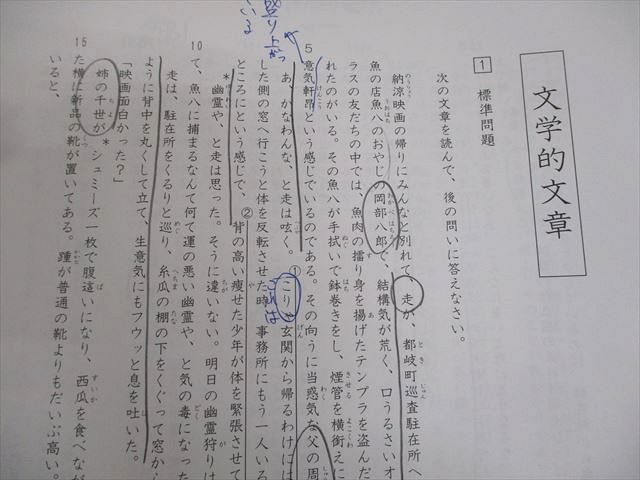 文学的文章
1 標準問題
次の文章を読んで、後の問いに答えなさい。
納涼映画の帰りにみんなと別れて、走が、都岐町巡査駐在所へ
魚の店魚八のおやじ岡部八郎で、結構気が荒く、口うるさいオ
ラスの友だちの中では、魚肉の擂り身を揚げたテンプラを盗んだ
れたのがいる。その魚八が手拭いで鉢巻きをし、煙管を横銜えに
5 意気軒昂という感じでいるのである。その向うに当惑気な父の周
あ、かなわんな、と走は呟く。①こりゃ玄関から帰るわけには
した側の窓へ行こうと体を反転させた時、事務所にもう一人いる
ところにという感じで、②背の高い痩せた少年が体を緊張させて
*幽霊や、と走は思った。そうに違いない。明日の幽霊狩りは
10 て、魚八に捕まるなんて何て運の悪い幽霊や、と気の毒になった
走は、駐在所をくるりと巡り、糸瓜の棚の下をくぐって窓から
ように背中を丸くして立て、生意気にもフウッと息を吐いた。
「映画面白かった?」
姉の千世が*シュミーズ一枚で腹這いになり、西瓜を食べなが
15 た横に新品の靴が置いてある。踵が普通の靴よりもだいぶ高い。
いると、
盛り上がっ
ている
これは